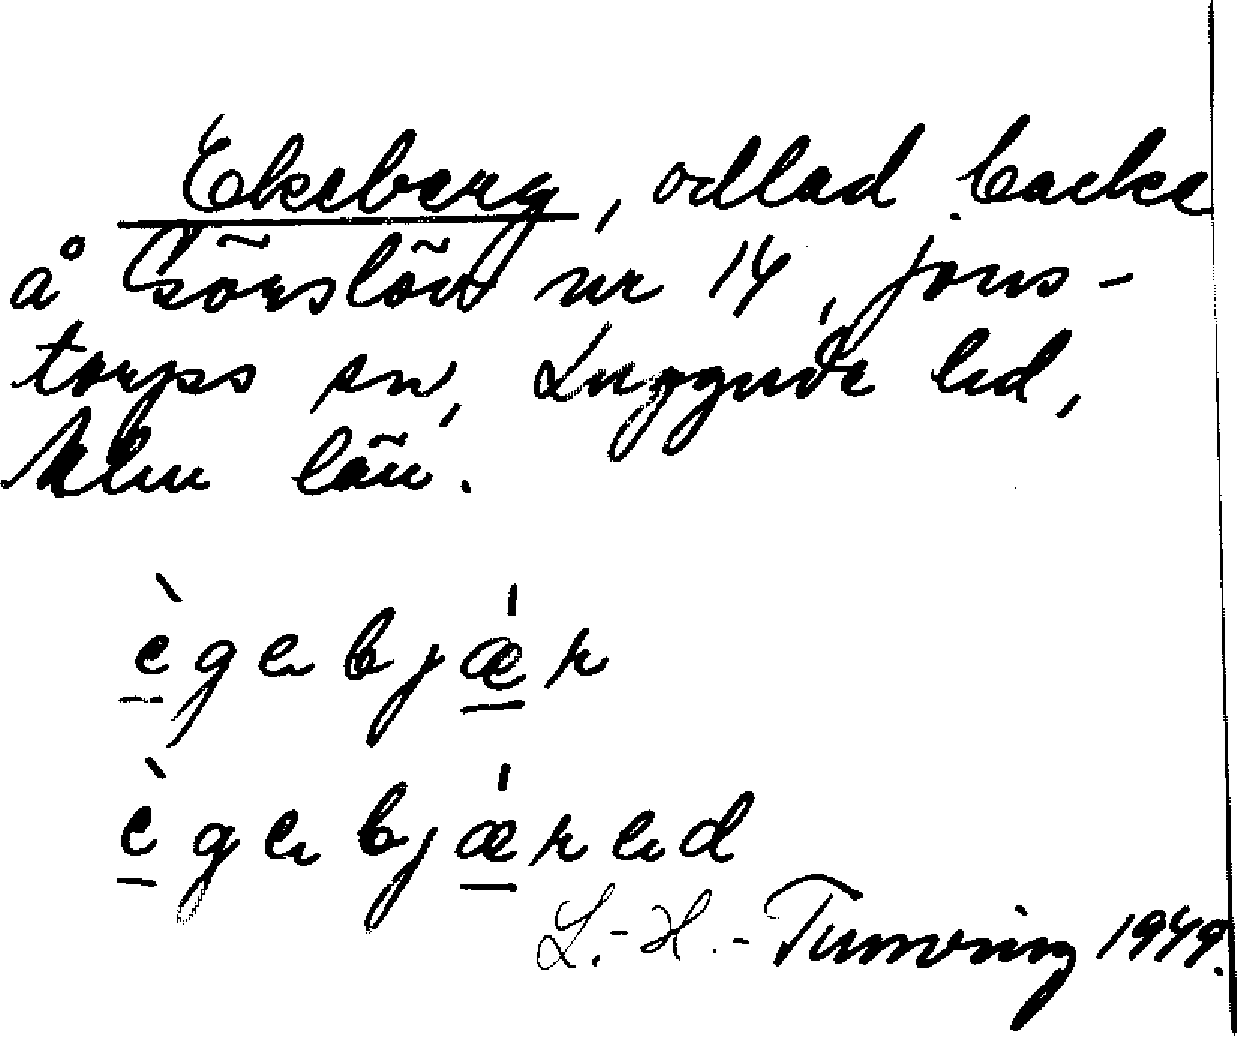 Ekeberg, odlad backe
å Görslöv nr 14, Jons-
torps sn, Luggude hd,
Mlm län.
ègebjǽr
ègebjǽred
L.-H.-Tunving 1949.